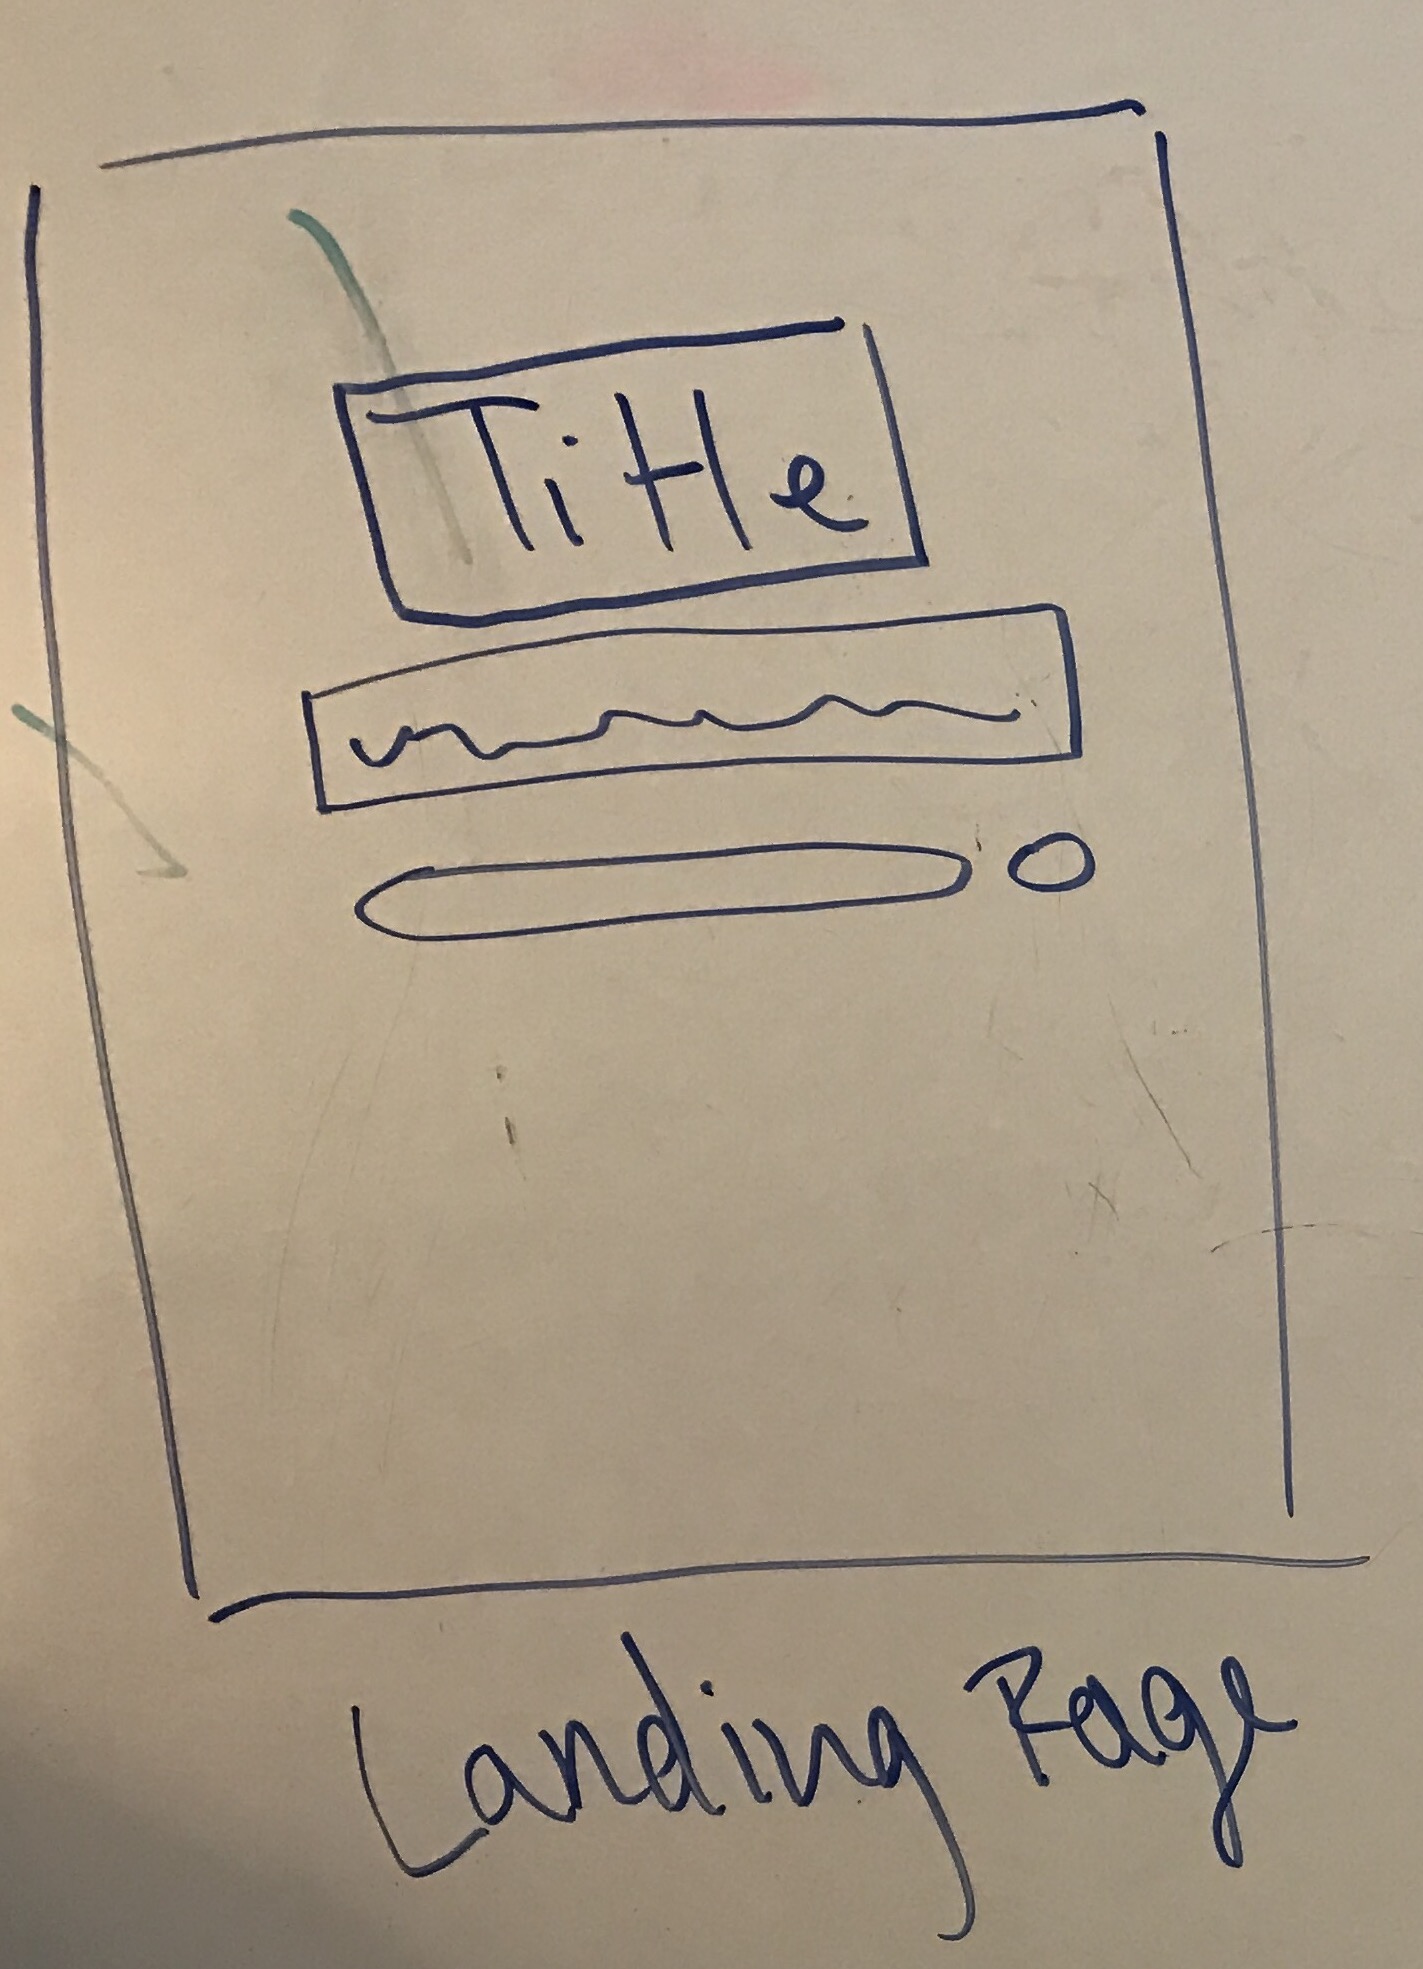 Title
Landing Page